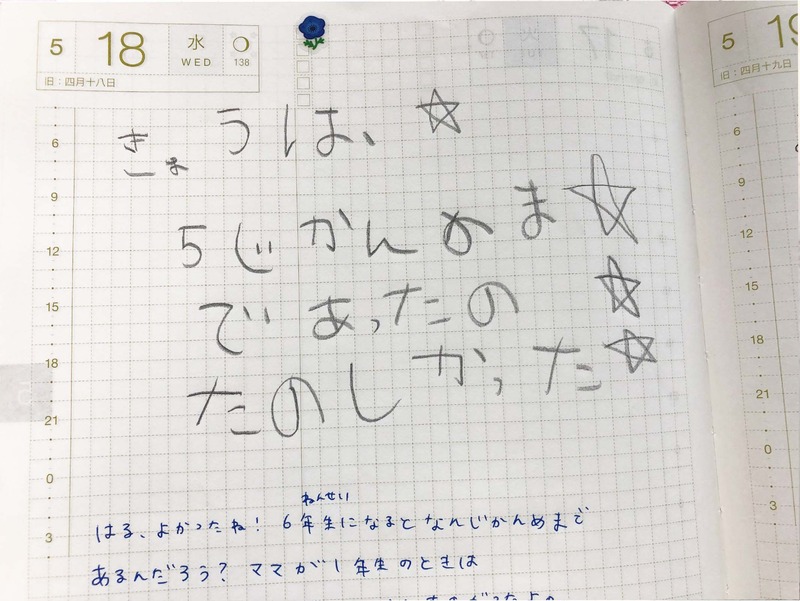 5 18 水 WED 138
旧：四月十八日
きょうは、☆
5じかんめま☆
であったの☆
たのしかった☆
ねんせい
はる、よかったね！ 6年生になるとなんじかんめまで
あるんだろう？ ママが1年生のときは
6
9
12
15
18
21
0
3
5 19
旧：四月十九日
6
9
12
15
18
21
0
3